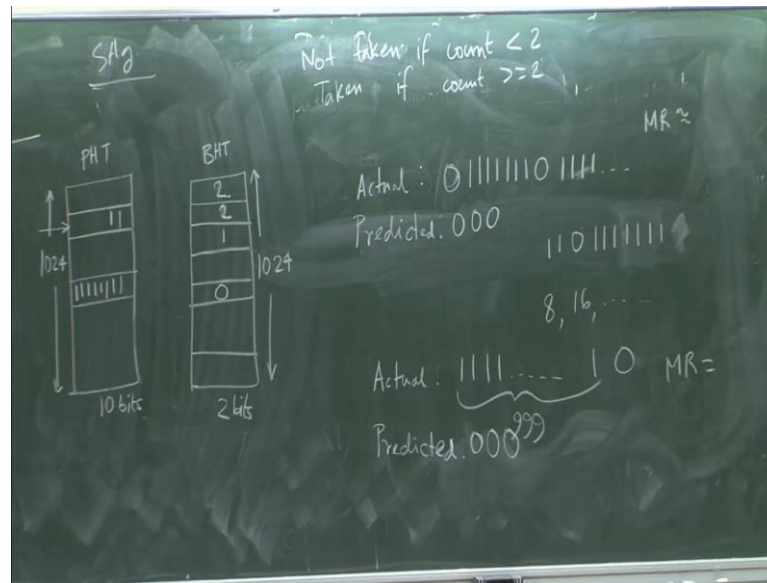 SAg
Not taken if count < 2
Taken if count >= 2
MR ≈
PHT
BHT
11
1024
1111111
10 bits
2
2
1
0
1024
2 bits
Actual : 011111110 1111...
Predicted. 000
11011111111
8, 16, ....
Actual : 1111..... 1 0
MR =
Predicted. 000
999